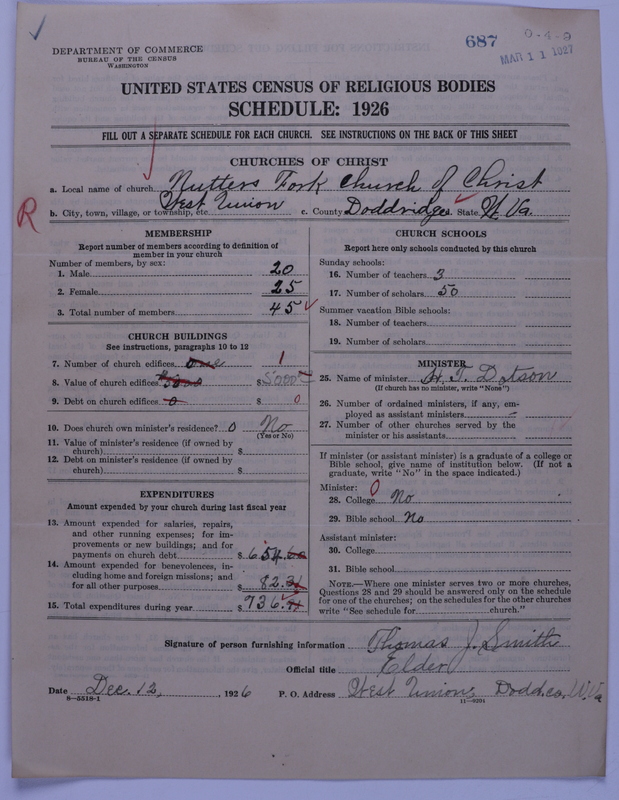 687
MAR 11 1927
DEPARTMENT OF COMMERCE
BUREAU OF THE CENSUS
WASHINGTON
UNITED STATES CENSUS OF RELIGIOUS BODIES
SCHEDULE: 1926
FILL OUT A SEPARATE SCHEDULE FOR EACH CHURCH. SEE INSTRUCTIONS ON THE BACK OF THIS SHEET
CHURCHES OF CHRIST
a. Local name of church Nutters Fork Church of Christ
b. City, town, village, or township, etc. West Union c. County Doddridge State W. Va.
R
MEMBERSHIP
Report number of members according to definition of
member in your church
Number of members, by sex:
1. Male 20
2. Female 25
3. Total number of members 45
CHURCH BUILDINGS
See instructions, paragraphs 10 to 12
7. Number of church edifices one 1
8. Value of church edifices $5000
9. Debt on church edifices 0 $ 0
10. Does church own minister's residence? 0 No
(Yes or No)
11. Value of minister's residence (if owned by
church) $
12. Debt on minister's residence (if owned by
church) $
EXPENDITURES
Amount expended by your church during last fiscal year
13. Amount expended for salaries, repairs,
and other running expenses; for im-
provements or new buildings; and for
payments on church debt $ 654.00
14. Amount expended for benevolences, in-
cluding home and foreign missions; and
for all other purposes $ 82.
15. Total expenditures during year $ 736.
CHURCH SCHOOLS
Report here only schools conducted by this church
Sunday schools:
16. Number of teachers 3
17. Number of scholars 50
Summer vacation Bible schools:
18. Number of teachers
19. Number of scholars
MINISTER
25. Name of minister H. T. Dotson
(If church has no minister, write "None")
26. Number of ordained ministers, if any, em-
ployed as assistant ministers –
27. Number of other churches served by the
minister or his assistants
If minister (or assistant minister) is a graduate of a college or
Bible school, give name of institution below. (If not a
graduate, write "No" in the space indicated.)
Minister: 0
28. College No
29. Bible school No
Assistant minister:
30. College
31. Bible school
NOTE.—Where one minister serves two or more churches,
Questions 28 and 29 should be answered only on the schedule
for one of the churches; on the schedules for the other churches
write "See schedule for church."
Signature of person furnishing information Thomas J. Smith
Official title Elder
Date Dec. 12, , 1926 P. O. Address West Union, Dodd. co. W. Va
8—5518-1 11—9204